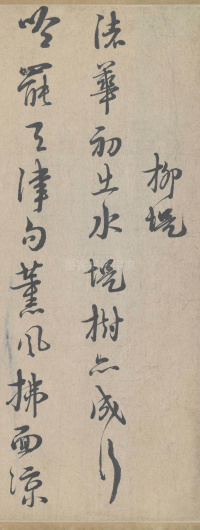 柳堤
渚華初出水堤樹亦成行
吟罷天津句薰風拂面涼